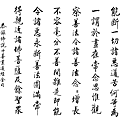 能斷一切諸惡道苦何等為
一謂於晝夜常念思惟觀
察善法令諸善法念念增
長不容毫分不善間雜是即能
令諸惡永斷善法圓滿常
得親近諸佛菩薩及餘聖眾
恭錄佛說十善業道經